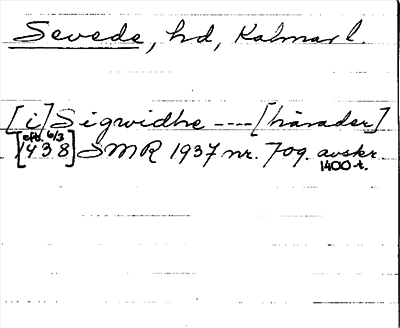 Sevede, hd, Kalmar l.
[i] Sigwidhe ---- [härader]
eft. 6/3
[1438] SMR 1937 nr. 709. avskr.
1400-t.